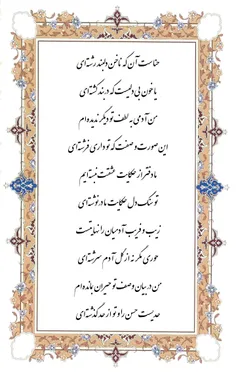 حناست آن که ناخن دلبند رشته‌ای
یا خون بی دلیست که در بند کشته‌ای
من آدمی به لطف تو دیگر ندیده‌ام
این صورت و صفت که تو داری فرشته‌ای
مادفتر از حکایت عشقت نبسته‌ایم
تو سنگ دل حکایت ما در نوشته‌ای
زیب و فریب آدمیان را نهایتست
حوری مگر نه از گل آدم سرشته‌ای
من در بیان وصف تو حیران بمانده‌ام
حدیست حسن را و تو از حد گذشته‌ای